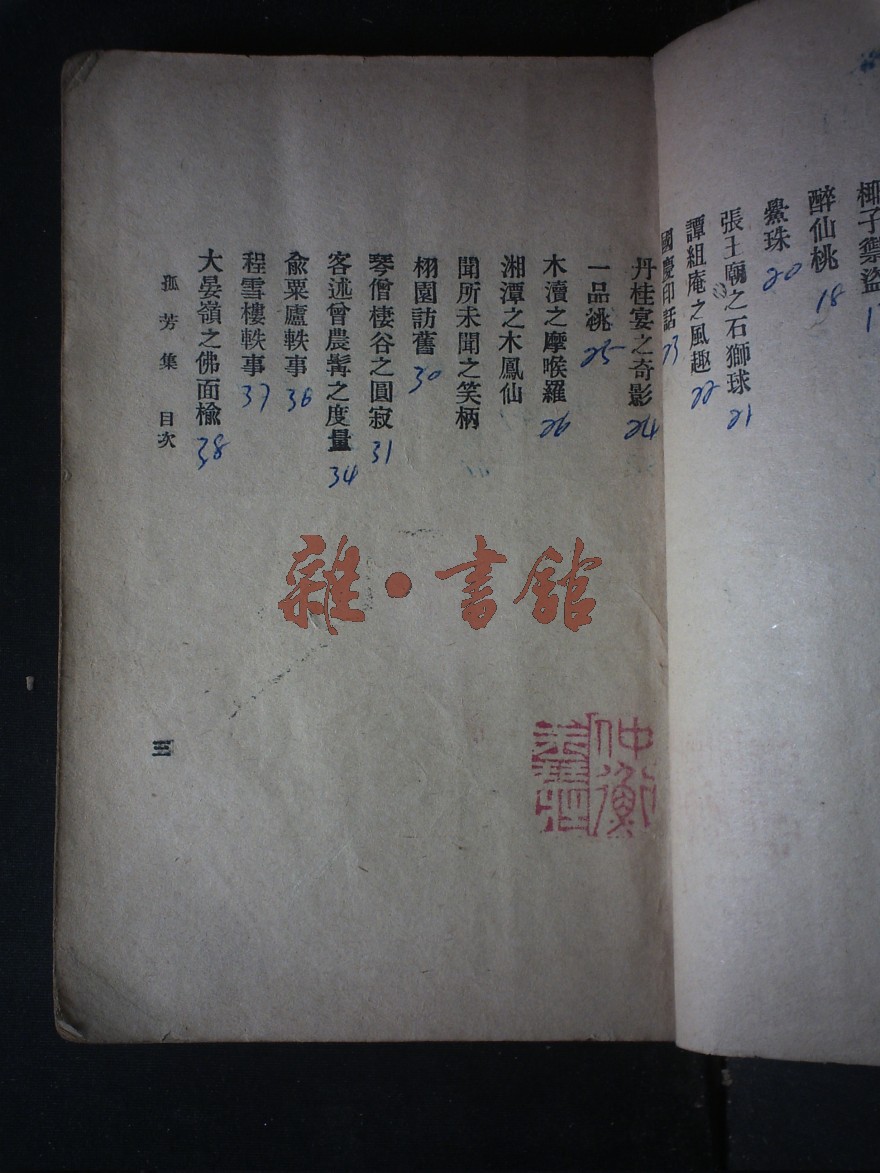 椰子禦盜
醉仙桃 18
鱟珠 20
張王廟之石獅球 21
譚組庵之風趣 22
國慶印話 23
丹桂宴之奇影 24
一品桃 25
木瀆之摩喉羅 26
湘潭之木鳳仙
聞所未聞之笑柄
栩園訪舊 30
琴僧棲谷之圓寂 31
客述曾農髯之度量 34
俞粟廬軼事 36
程雪樓軼事 37
大晏嶺之佛面楡 38
孤芳集 目次
三
雜・書館
仲衡